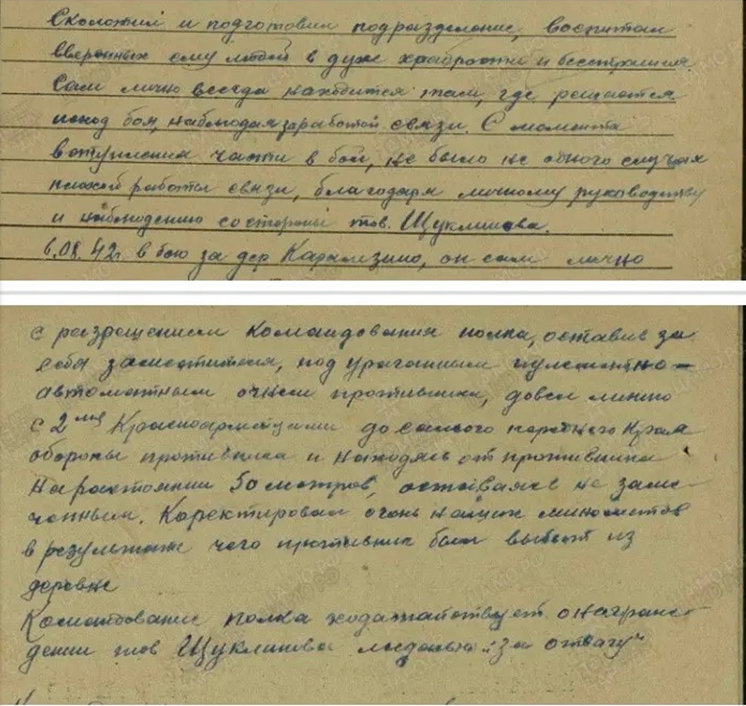 Сколотил и подготовил подразделение, воспитал
вверенных ему людей в духе храбрости и бесстрашия.
Сам лично всегда находится там, где решается
исход боя, наблюдая за работой связи. С момента
вступления части в бой, не было не одного случая
плохой работы связи, благодаря личному руководству
и наблюдению со стороны тов. Щуклинова.
6.08.42г. в бою за дер Карамзино, он сам лично
с разрещением командования полка, оставив за
себя заместителя, под ураганным пулеметно-
автоматным огнем противника, довел линию
с 2мя Красноармейцами до самого переднего Края
обороны противника и находясь от противника
на растоянии 50 метров, оставаясь не заме-
ченным. Каректировал огонь наших минометов
в результате чего противник был выбит из
деревне
Командование полка ходатайствует о награж-
дении тов Щуклинова медалью "за отвагу"